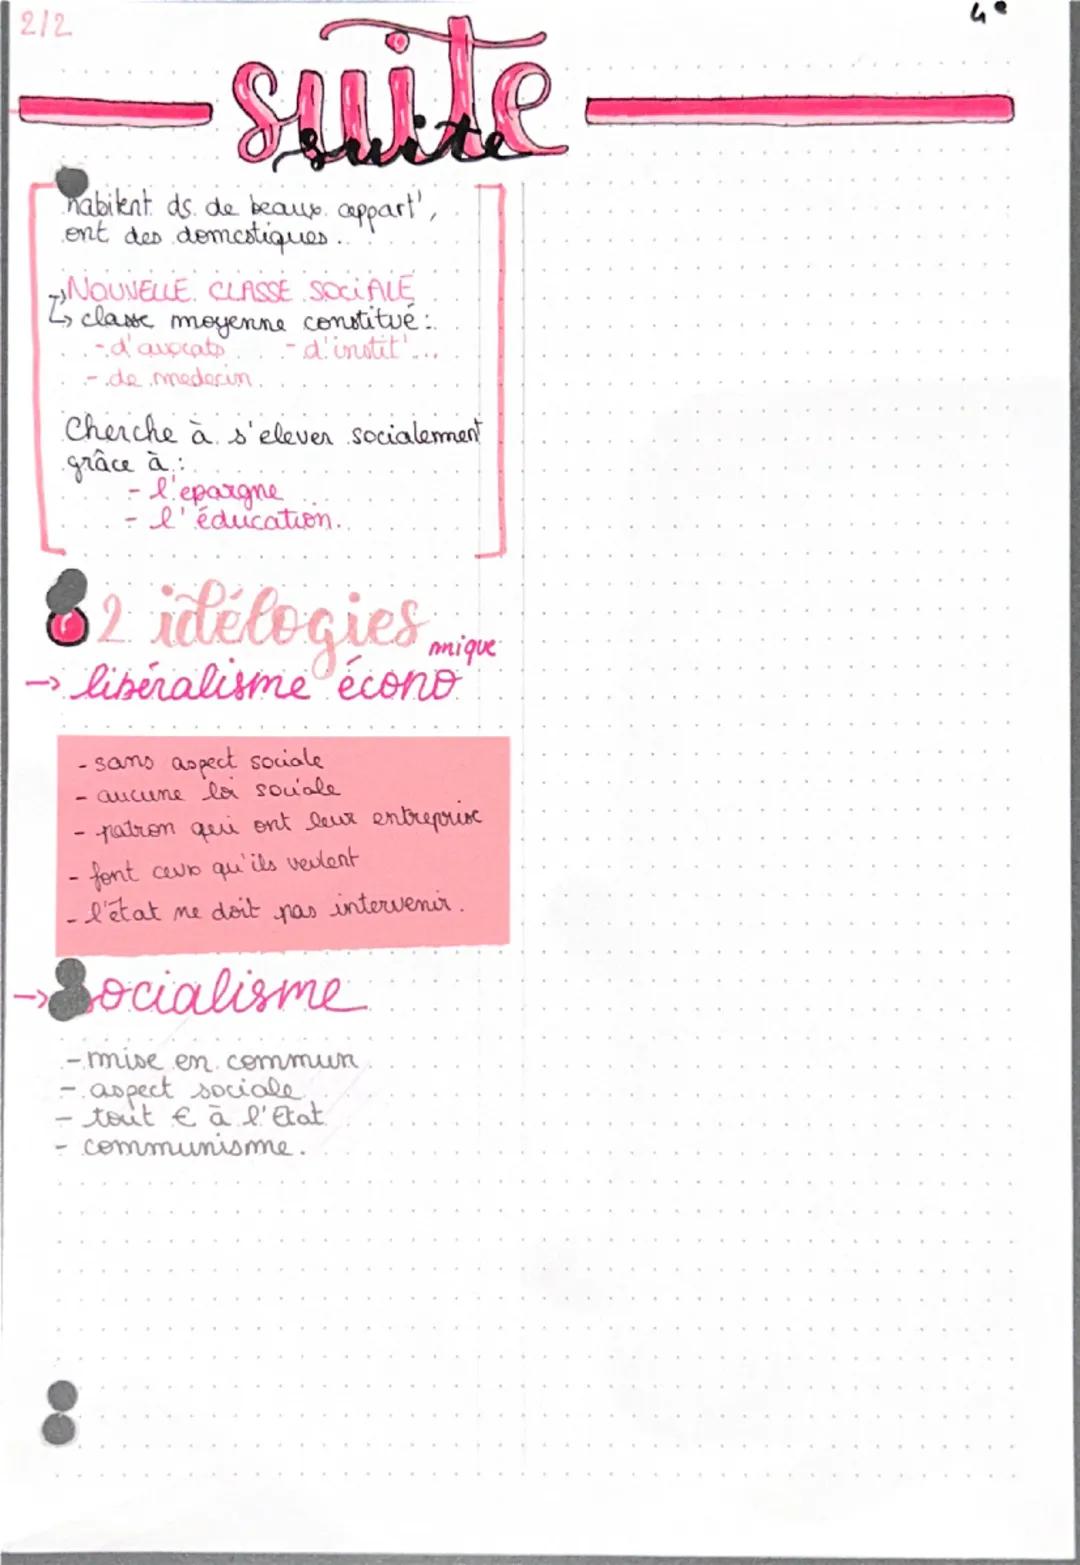 2/2
4e
suite
suite
habitent ds de beaux appart',
ont des domestiques..
NOUVELLE CLASSE SOCiALE
↳ classe moyenne constitué :
- d'avocats - d'instit'...
- de medecin.
Cherche à s'elever socialement
grâce à :
- l'epargne
- l'éducation.
2 idélogies
mique
→ libéralisme écono
- sans aspect sociale
- aucune loi sociale
- patron qui ont leur entreprise
- font ceux qu'ils veulent
- l'état ne doit pas intervenir.
→ socialisme
- mise en commun
- aspect sociale
- tout € à l'Etat
- communisme.